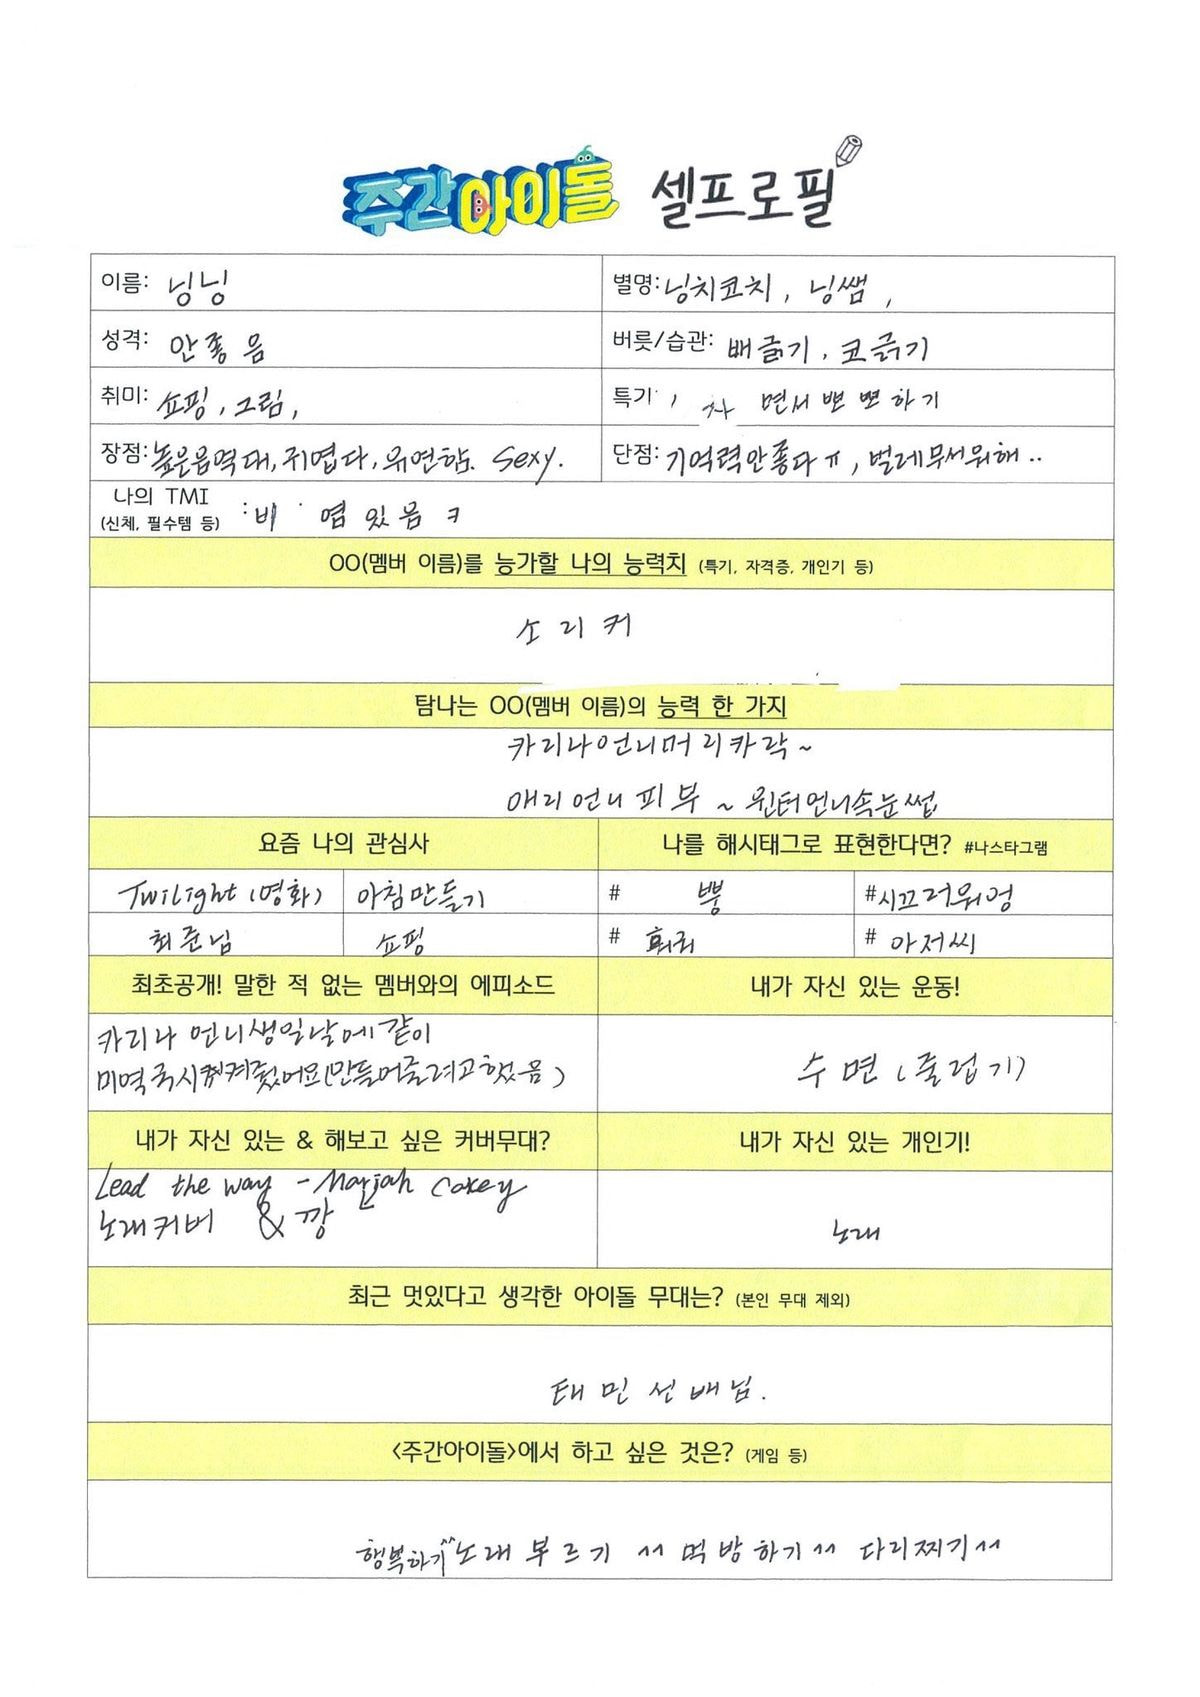 주간아이돌 셀프로필
이름: 닝닝
별명: 닝치코치, 닝쌤,
성격: 안좋음
버릇/습관: 배긁기, 코긁기
취미: 쇼핑, 그림,
특기 자면서 뽀뽀하기
장점: 높은음역대, 귀엽다, 유연함. Sexy.
단점: 기억력안좋다ㅠ, 벌레무서워해..
나의 TMI
(신체, 필수템 등) : 비염있음 ㅋ
OO(멤버 이름)를 능가할 나의 능력치 (특기, 자격증, 개인기 등)
소리커
탐나는 OO(멤버 이름)의 능력 한 가지
카리나언니머리카락~
애리언니피부~ 윈터언니속눈썹
요즘 나의 관심사
나를 해시태그로 표현한다면? #나스타그램
Twilight (영화) 아침만들기
# 뿡 #시끄러워엉
최준님 쇼핑
# 휘리 # 아저씨
최초공개! 말한 적 없는 멤버와의 에피소드
내가 자신 있는 운동!
카리나 언니생일날에 같이
미역국시켜줬어요(만들어줄려고했음)
수면(줄넘기)
내가 자신 있는 & 해보고 싶은 커버무대?
내가 자신 있는 개인기!
Lead the way - Mariah Carey
노래커버 & 깡
노래
최근 멋있다고 생각한 아이돌 무대는? (본인 무대 제외)
태민선배님.
<주간아이돌>에서 하고 싶은 것은? (게임 등)
행복하기^^노래부르기^^먹방하기^^다리찌기^^